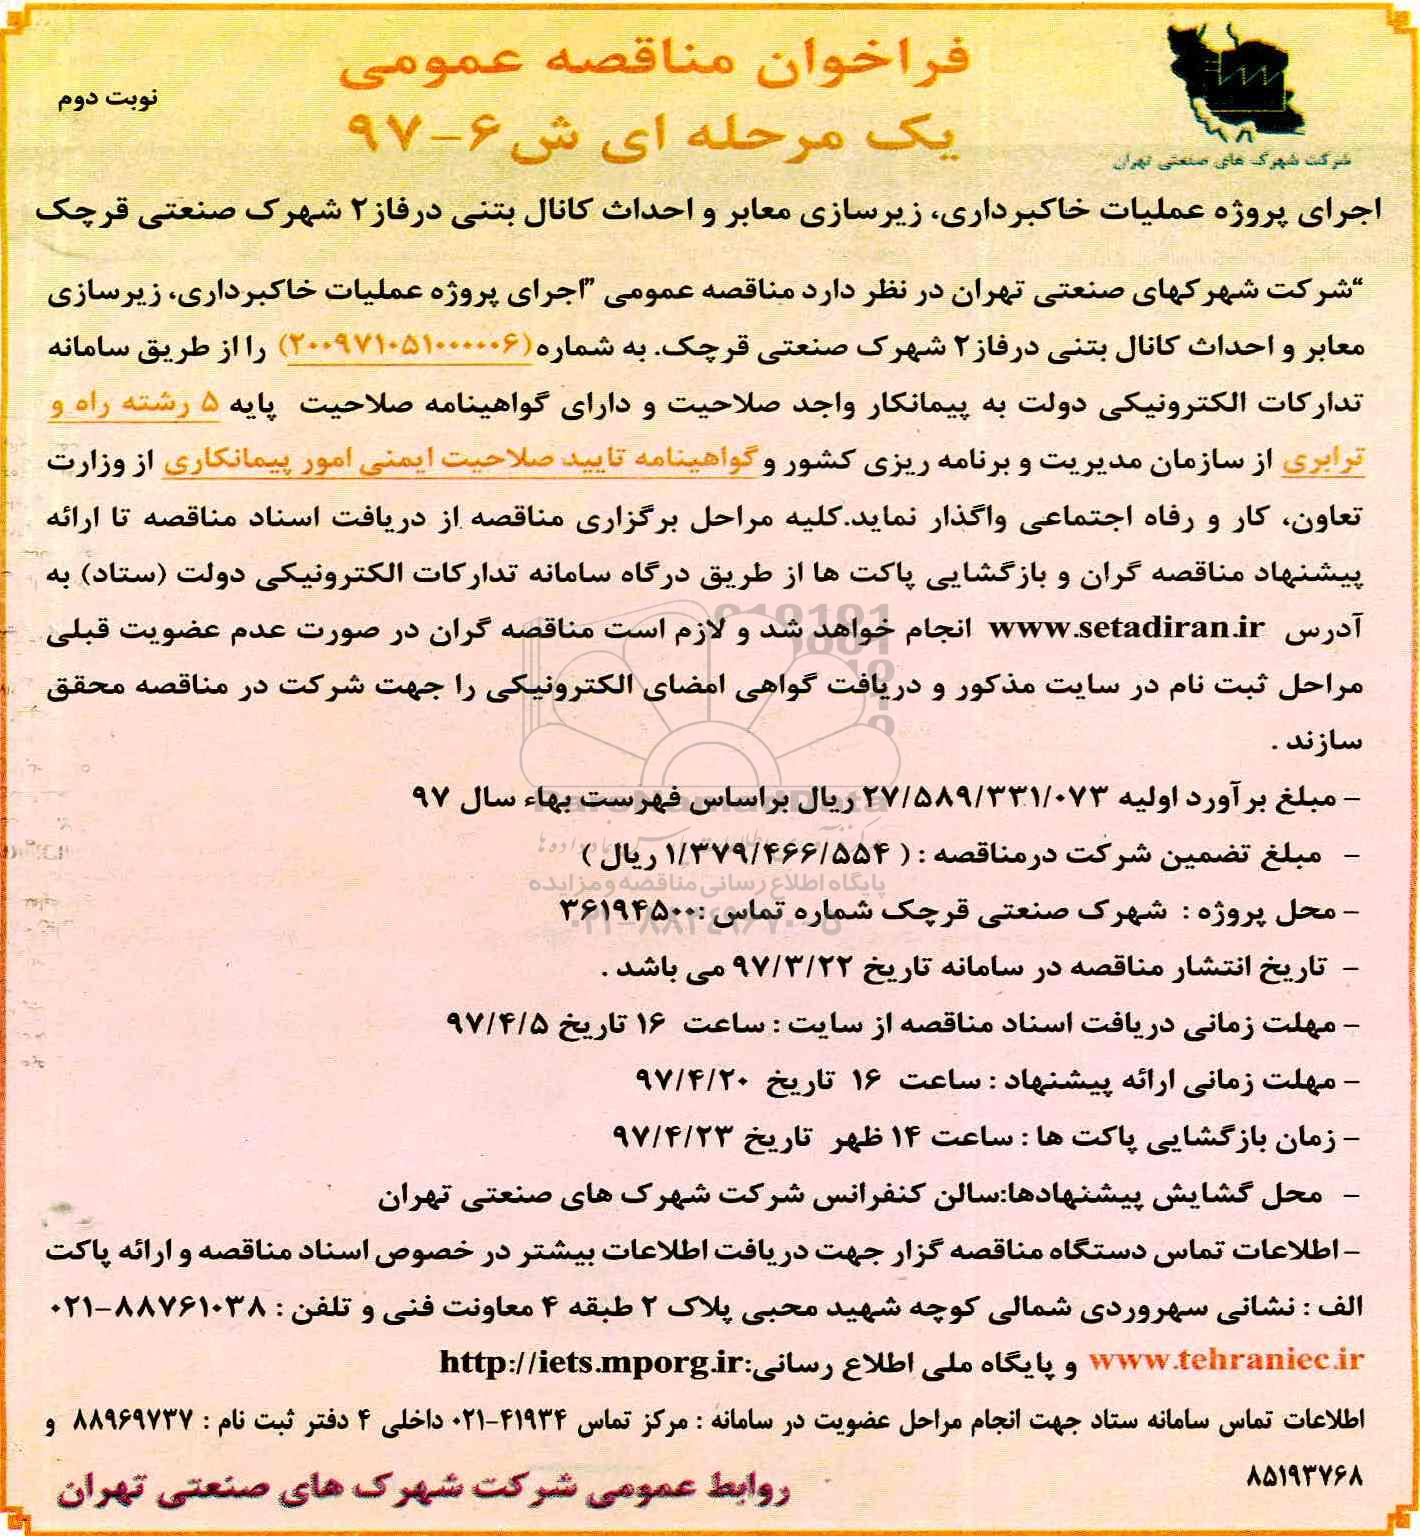 فراخوان مناقصه عمومی
یک مرحله ای ش ۶-۹۷
نوبت دوم
شرکت شهرک های صنعتی تهران
اجرای پروژه عملیات خاکبرداری، زیرسازی معابر و احداث کانال بتنی درفاز۲ شهرک صنعتی قرچک
“شرکت شهرکهای صنعتی تهران در نظر دارد مناقصه عمومی ”اجرای پروژه عملیات خاکبرداری، زیرسازی
معابر و احداث کانال بتنی درفاز۲ شهرک صنعتی قرچک. به شماره (۲۰۰۹۷۱۰۵۱۰۰۰۰۰۶) را از طریق سامانه
تدارکات الکترونیکی دولت به پیمانکار واجد صلاحیت و دارای گواهینامه صلاحیت پایه ۵ رشته راه و
ترابری از سازمان مدیریت و برنامه ریزی کشور و گواهینامه تایید صلاحیت ایمنی امور پیمانکاری از وزارت
تعاون، کار و رفاه اجتماعی واگذار نماید.کلیه مراحل برگزاری مناقصه از دریافت اسناد مناقصه تا ارائه
پیشنهاد مناقصه گران و بازگشایی پاکت ها از طریق درگاه سامانه تدارکات الکترونیکی دولت (ستاد) به
آدرس www.setadiran.ir انجام خواهد شد و لازم است مناقصه گران در صورت عدم عضویت قبلی
مراحل ثبت نام در سایت مذکور و دریافت گواهی امضای الکترونیکی را جهت شرکت در مناقصه محقق
سازند .
- مبلغ برآورد اولیه ۲۷/۵۸۹/۳۳۱/۰۷۳ ریال براساس فهرست بهاء سال ۹۷
- مبلغ تضمین شرکت درمناقصه : ( ۱/۳۷۹/۴۶۶/۵۵۴ ریال )
پایگاه اطلاع رسانی مناقصه و مزایده
- محل پروژه : شهرک صنعتی قرچک شماره تماس :۳۶۱۹۴۵۰۰
- تاریخ انتشار مناقصه در سامانه تاریخ ۹۷/۳/۲۲ می باشد .
- مهلت زمانی دریافت اسناد مناقصه از سایت : ساعت ۱۶ تاریخ ۹۷/۴/۵
- مهلت زمانی ارائه پیشنهاد : ساعت ۱۶ تاریخ ۹۷/۴/۲۰
- زمان بازگشایی پاکت ها : ساعت ۱۴ ظهر تاریخ ۹۷/۴/۲۳
- محل گشایش پیشنهادها:سالن کنفرانس شرکت شهرک های صنعتی تهران
- اطلاعات تماس دستگاه مناقصه گزار جهت دریافت اطلاعات بیشتر در خصوص اسناد مناقصه و ارائه پاکت
الف : نشانی سهروردی شمالی کوچه شهید محبی پلاک ۲ طبقه ۴ معاونت فنی و تلفن : ۸۸۷۶۱۰۳۸-۰۲۱
www.tehraniec.ir و پایگاه ملی اطلاع رسانی:http://iets.mporg.ir
اطلاعات تماس سامانه ستاد جهت انجام مراحل عضویت در سامانه : مرکز تماس ۴۱۹۳۴-۰۲۱ داخلی ۴ دفتر ثبت نام : ۸۸۹۶۹۷۳۷ و
۸۵۱۹۳۷۶۸
روابط عمومی شرکت شهرک های صنعتی تهران